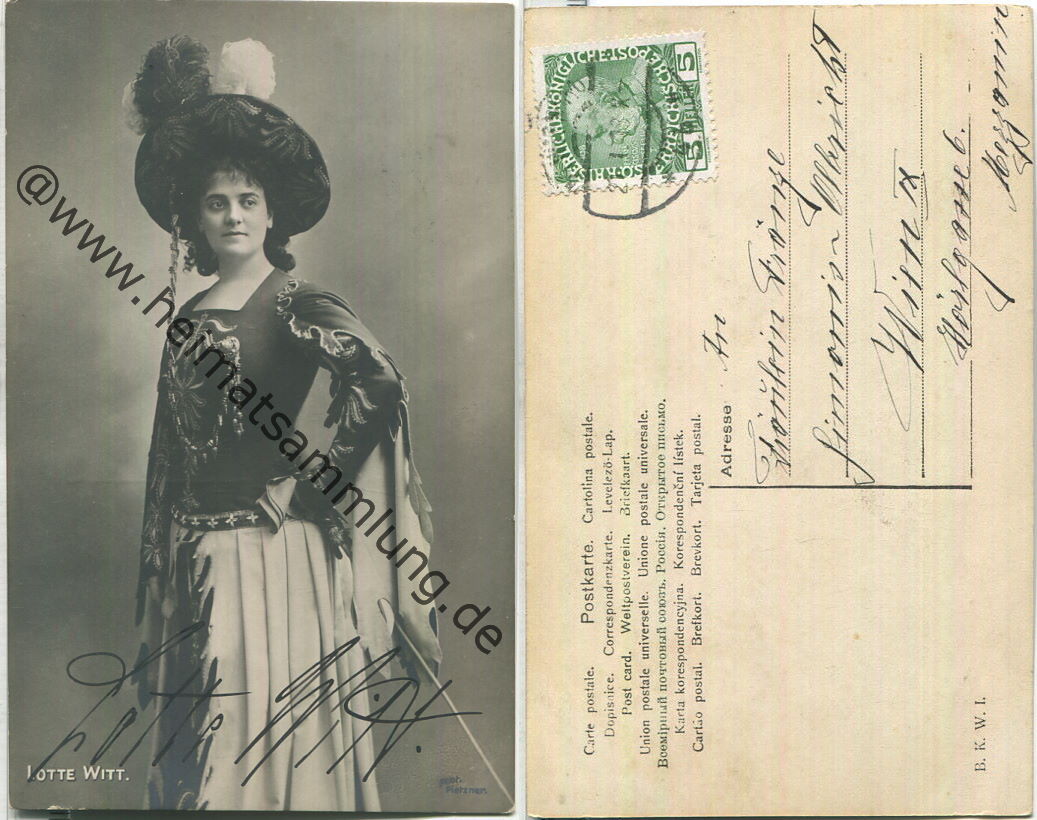 @www.heimatsammlung.de
Lotte Witt.
LOTTE WITT.
phot.
Pietzner.
KAISERLICHE KÖNIGLICHE ÖSTERREICHISCHE POST
5
HELLER
5
Carte postale. Postkarte. Cartolina postale.
Dopisnice. Correspondenzkarte. Levelező-Lap.
Post card. Weltpostverein. Briefkaart.
Union postale universelle. Unione postale universale.
Всемірный почтовый союзъ. Россія. Открытое письмо.
Karta korespondencyjna. Korespondenční lístek.
Cartão postal. Brefkort. Brevkort. Tarjeta postal.
Adresse
An
Fräulein
Wien IX
Hörlgasse 6.
B. K. W. I.